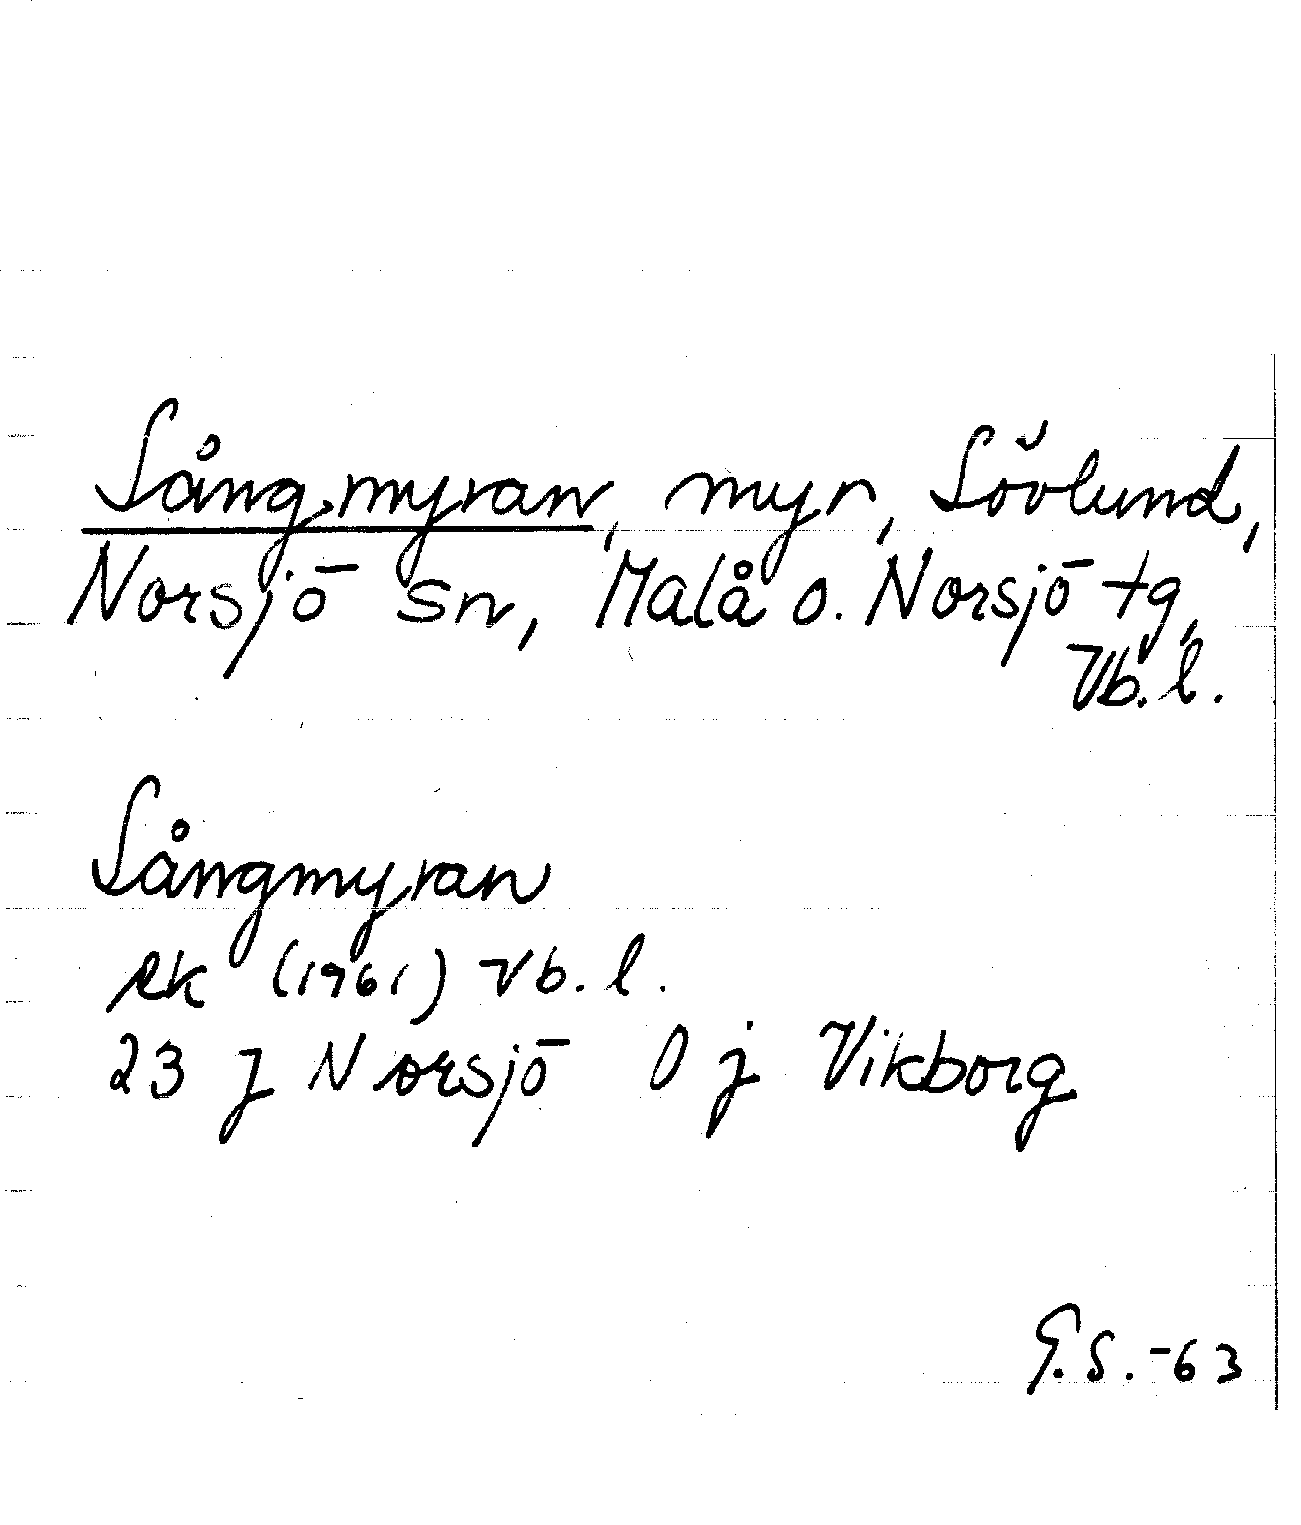 Sångmyran, myr, Lövlund,
Norsjö sn, Malå o. Norsjö tg,
Vb. l.
Sångmyran
ek (1961) Vb. l.
23 J Norsjö O j Vikborg
G.S. -63